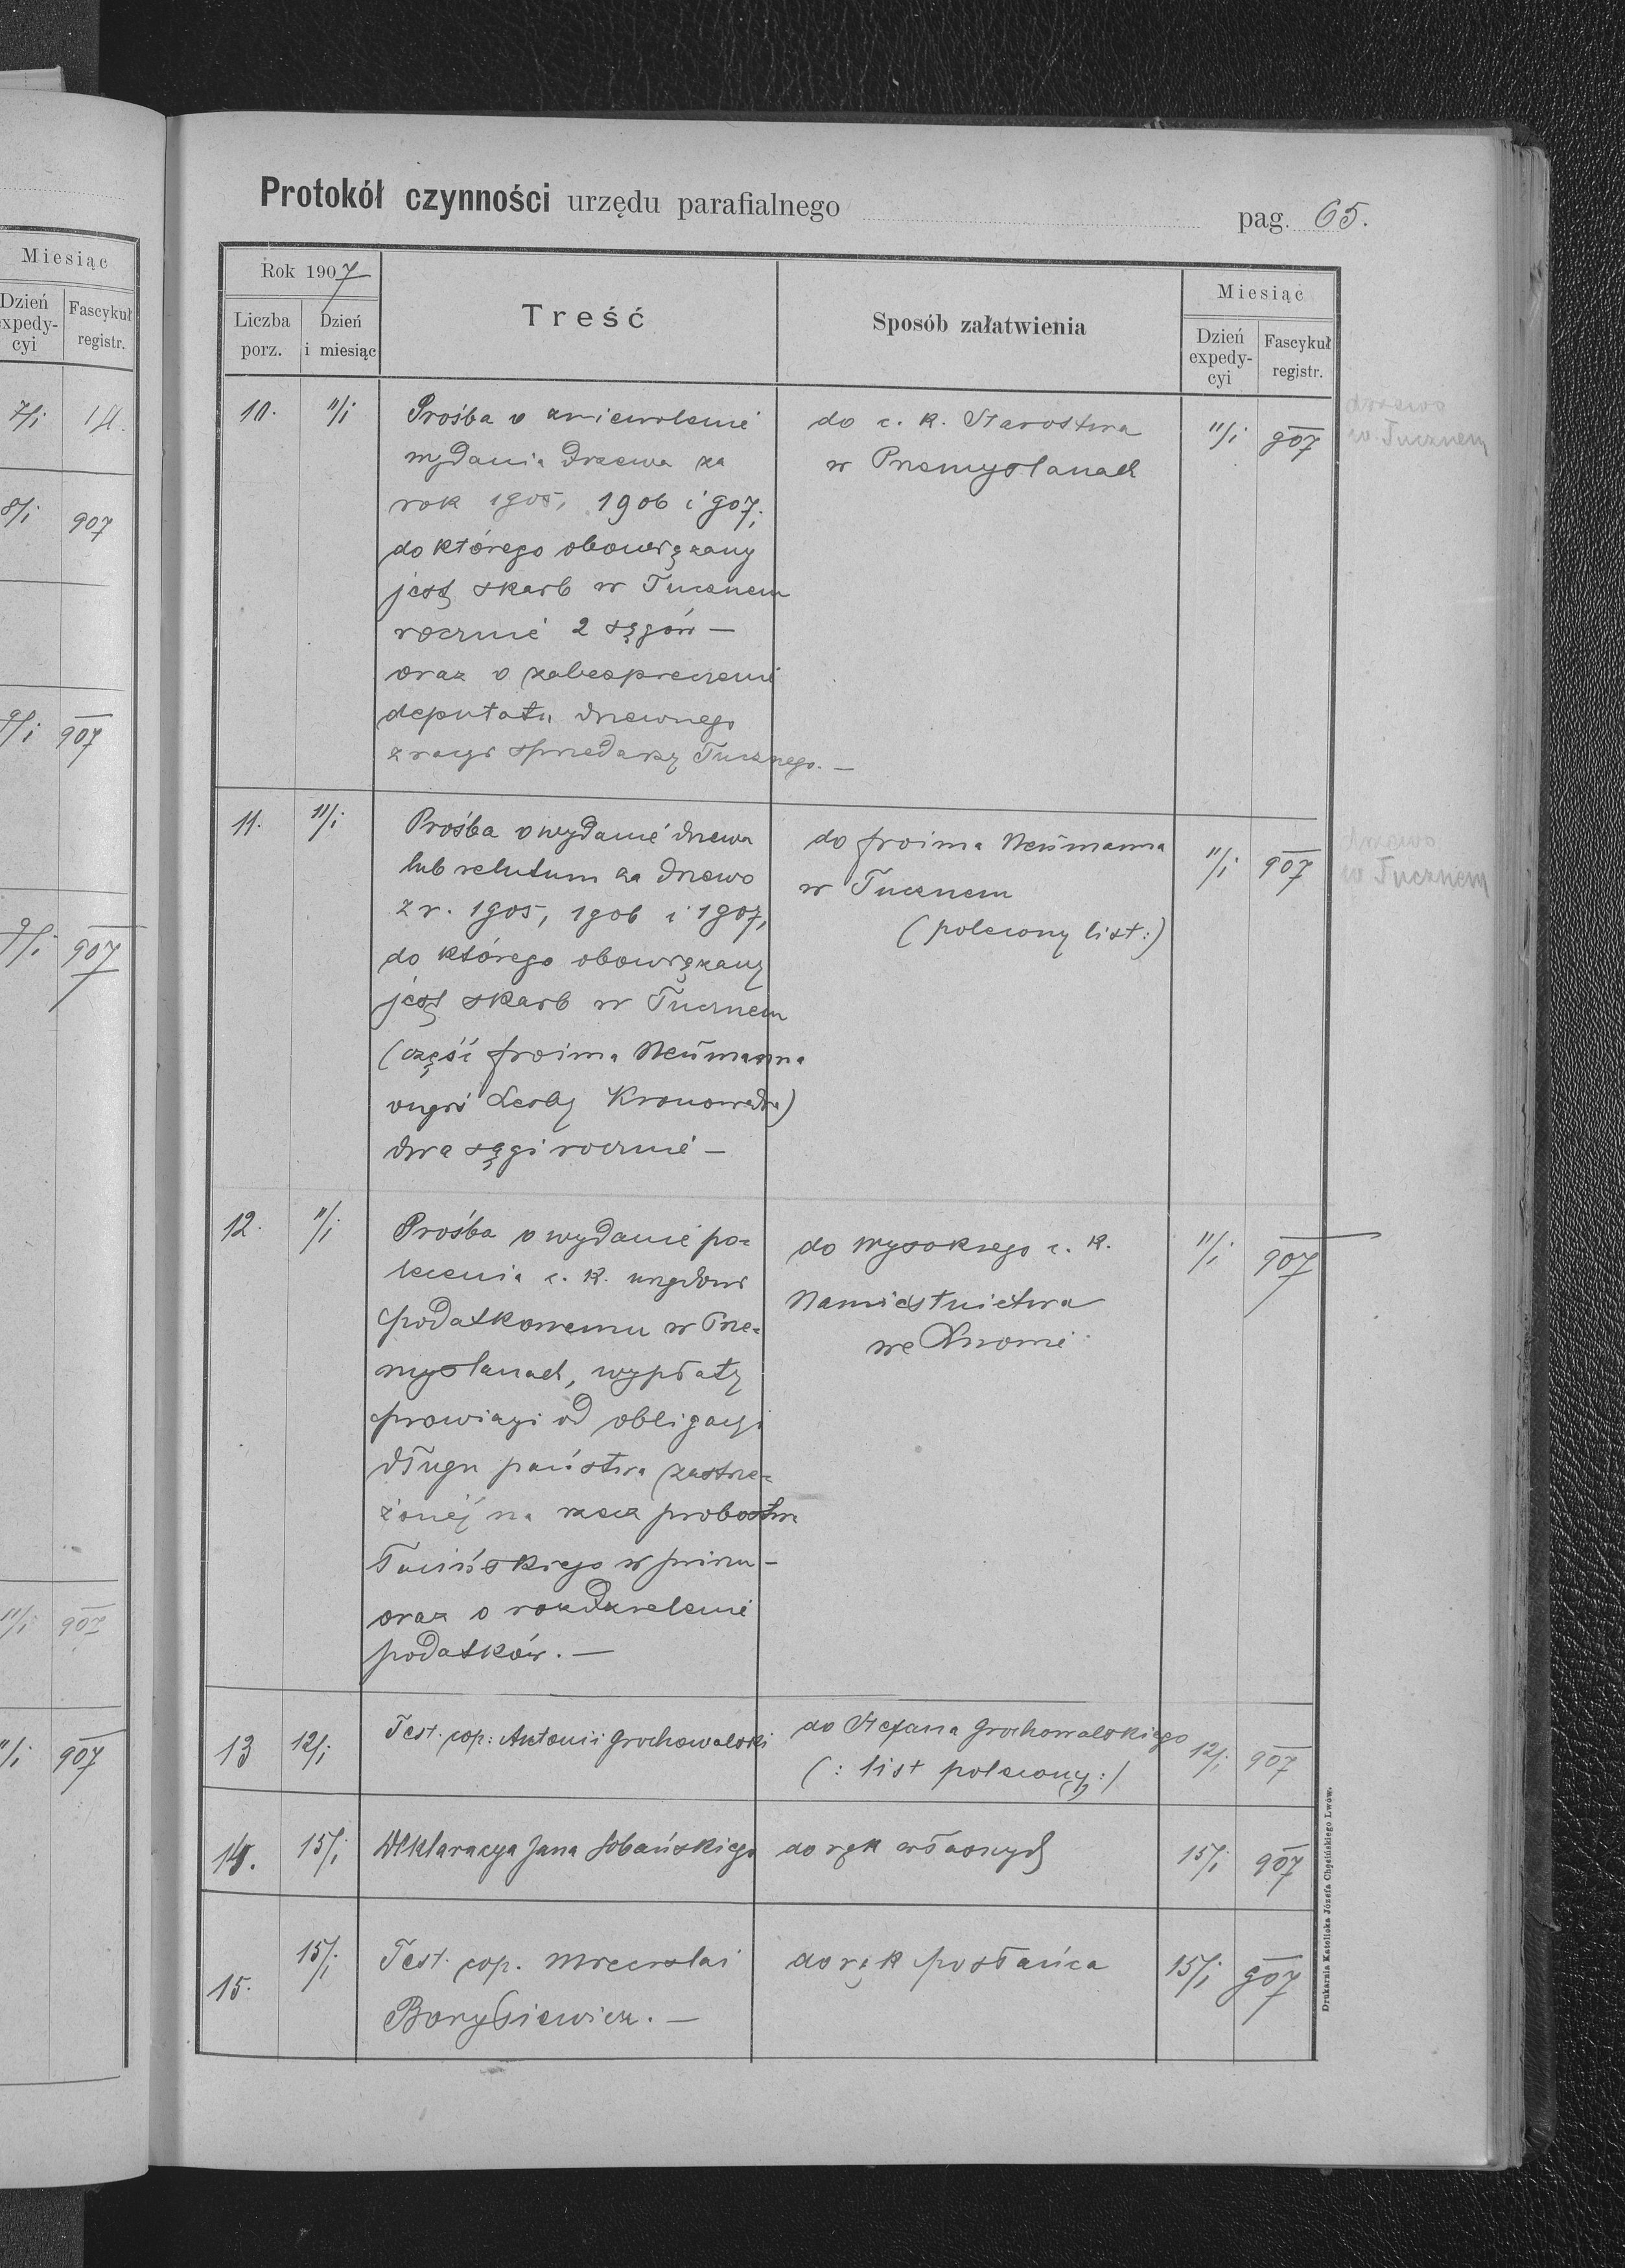 Miesiąc
Dzień expedycyi
Fascykuł registr.
7/i 14.
8/i 907
9/i 907
9/i 907
11/i 907
11/i 907
Protokół czynności urzędu parafialnego pag. 65.
Rok 1907
Treść
Sposób załatwienia
Miesiąc
Liczba porz.
Dzień i miesiąc
Dzień expedy-cyi
Fascykuł registr.
10. 11/i
Prośba o zniewolenie
wydania drzewa za
rok 1905, 1906 i 907,
do którego obowiązany
jest skarb w Tucznem
rocznie 2 sągów —
oraz o zabezpieczenie
deputatu drzewnego
z racyi sprzedaży Tucznego. —
do c. k. Starostwa
w Przemyslanach
11/i 907
drzewo
w Tucznem
11. 11/i
Prośba o wydanie drzewa
lub relutum za drzewo
z r. 1905, 1906 i 1907,
do którego obowiązany
jest skarb w Tucznem
(część froima Neumanna
Kronowedra)
dwa sągi rocznie —
do froima Neumanna
w Tucznem
(polecony list:)
11/i 907
drzewo
w Tucznem
12. 11/i
Prośba o wydanie po=
lecenia c. k. urzędowi
podatkowemu w Prze=
myslanach, wypłaty
prowizyi od obligacyi
długu państwa zastrze=
żonéj na rzecz probostwa
oraz o
podatków. —
do wysokiego c. k.
Namiestnictwa
we Lwowie
11/i 907
13 12/i
Test. cop: Antonii Grochowalski
do Stefana Grochowalskiego
(: list polecony :)
12/i 907
14. 15/i
Deklaracya Jana Sobańskiego
do rąk własnych
15/i 907
15. 15/i
Test. cop.
Borysiewicz. —
do rąk posłańca
15/i 907
Drukarnia Katolicka Józefa Chęcińskiego Lwów.